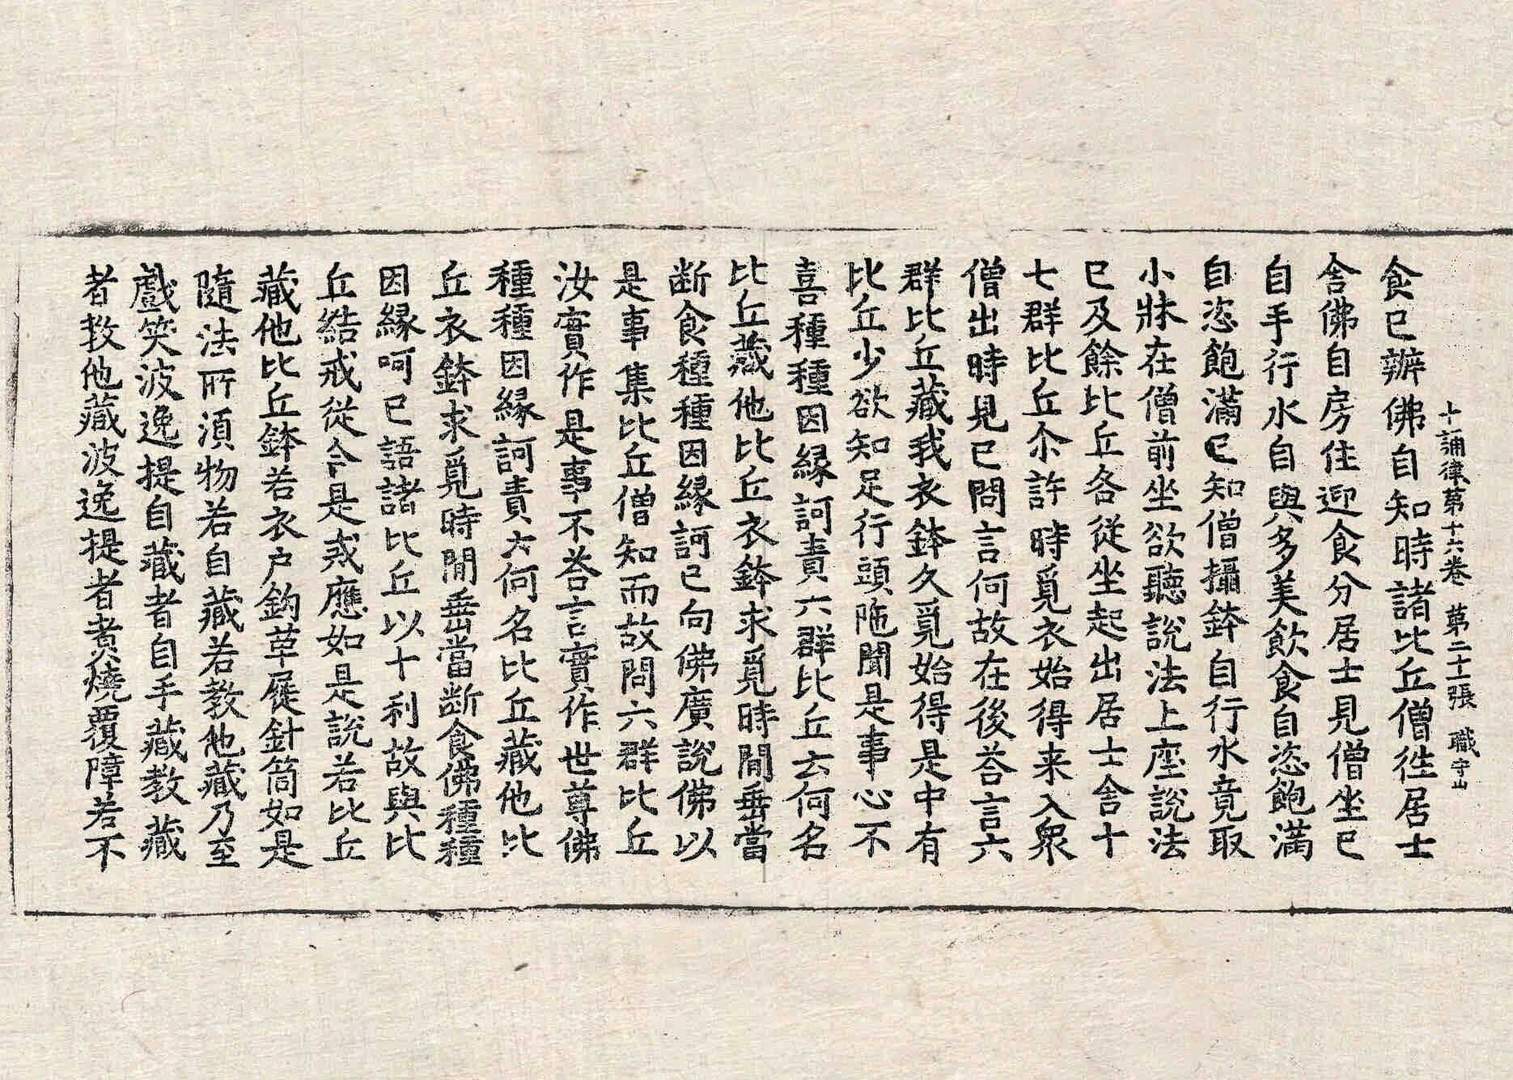 十誦律第十六卷 第二十一張 職 守山
食已辦佛自知時諸比丘僧徃居士
舍佛自房住迎食分居士見僧坐已
自手行水自與多美飲食自恣飽滿
自恣飽滿已知僧攝鉢自行水竟取
小牀在僧前坐欲聽說法上座說法
已及餘比丘各從坐起出居士舍十
七群比丘尒許時覓衣始得来入衆
僧出時見已問言何故在後荅言六
群比丘藏我衣鉢久覓始得是中有
比丘少欲知足行頭陁聞是事心不
喜種種因縁訶責六群比丘云何名
比丘藏他比丘衣鉢求覓時閒垂當
断食種種因縁訶已向佛廣說佛以
是事集比丘僧知而故問六群比丘
汝實作是事不荅言實作世尊佛
種種因縁訶責云何名比丘藏他比
丘衣鉢求覓時閒垂當断食佛種種
因縁呵已語諸比丘以十利故與比
丘結戒從今是戒應如是說若比丘
藏他比丘鉢若衣户鈎草屣針筒如是
隨法所湏物若自藏若教他藏乃至
戲笑波逸提自藏者自手藏教藏
者教他藏波逸提者煑燒覆障若不